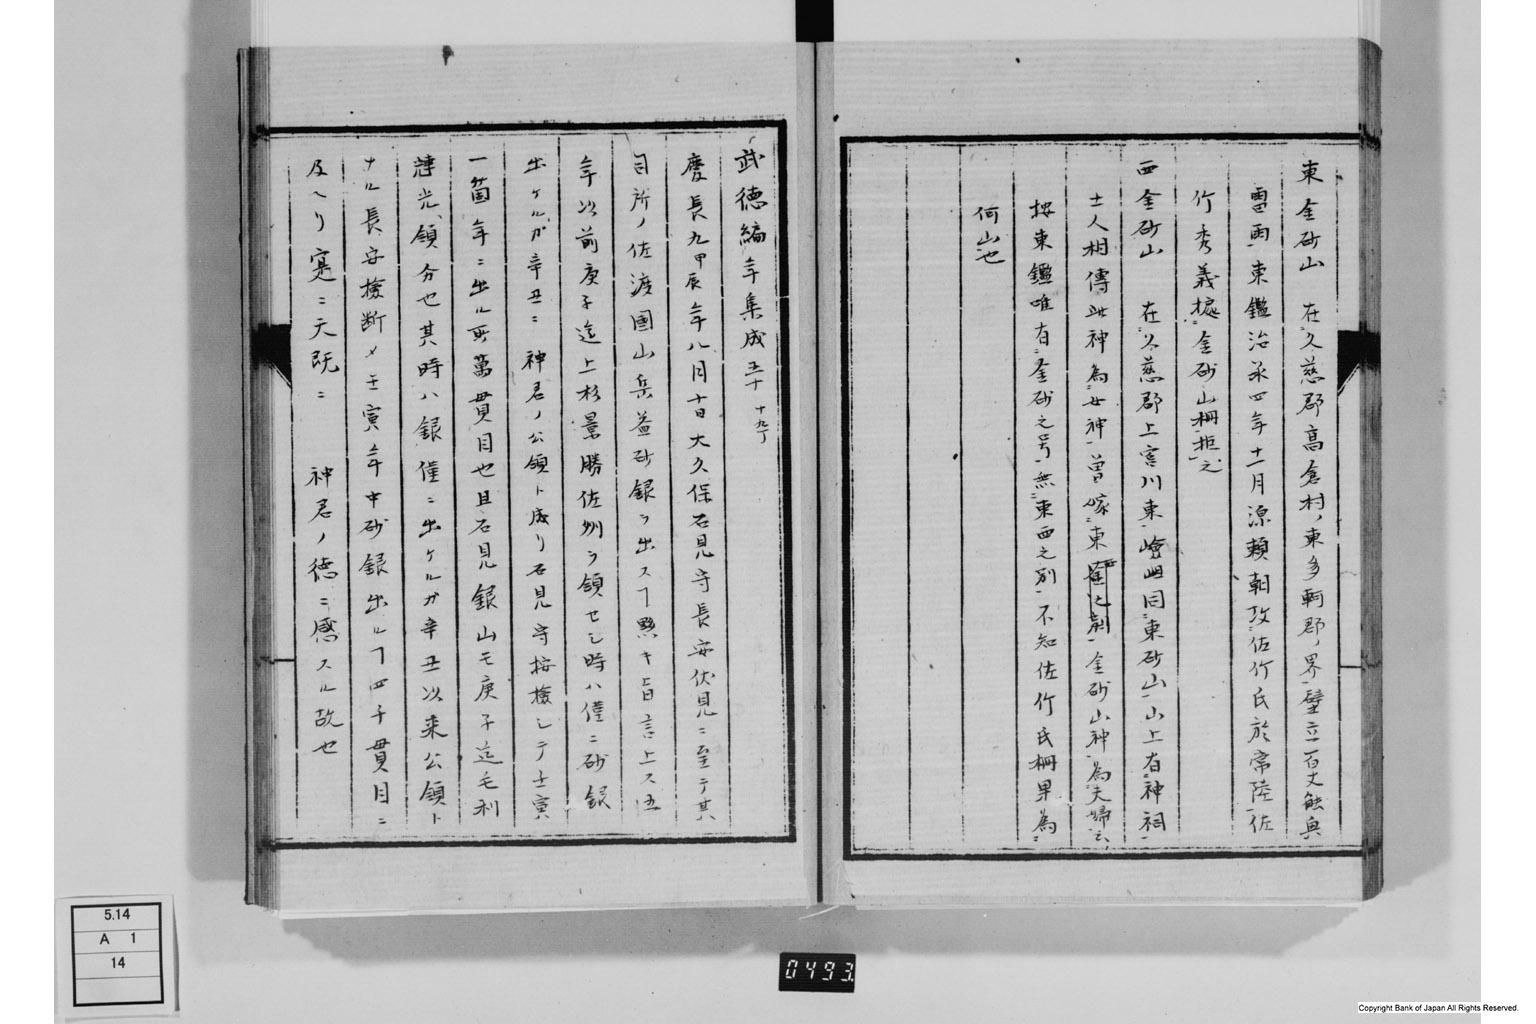 東金砂山　在久慈郡高倉村ノ東多軻郡ノ界壁立百丈触與
雷雨東鑑治承四年十一月源頼朝攻佐竹氏於常陸佐
竹秀義據金砂山柵拒之
西金砂山　在久慈郡上宮川東嶮岨同東砂山山上有神祠
土人相傳此神為女神曽嫁東金砂山神為夫婦云
按東鑑唯有金砂之号無東西之別不知佐竹氏柵果為
何山也
武徳編年集成五十　十九丁
慶長九甲辰年八月十日大久保石見守長安伏見ニ至テ其
司所ノ佐渡國山岳益砂銀ヲ出スヿ夥キ旨言上ス五
年以前庚子迄上杉景勝佐州ヲ領セシ時ハ僅ニ砂銀
出ケルガ辛丑ニ　神君ノ公領ト成リ石見守按檢シテ壬寅
一箇年ニ出ル所萬貫目也且石見銀山モ庚子迄毛利
輝元領分也其時ハ銀僅ニ出ケルガ辛丑以来公領ト
ナル長安檢断メ壬寅年中砂銀出ルヿ四千貫目ニ
及ヘリ寔ニ天既ニ　神君ノ徳ニ感スル故也
5.14
A 1
14
0493
Copyright Bank of Japan All Rights Reserved.